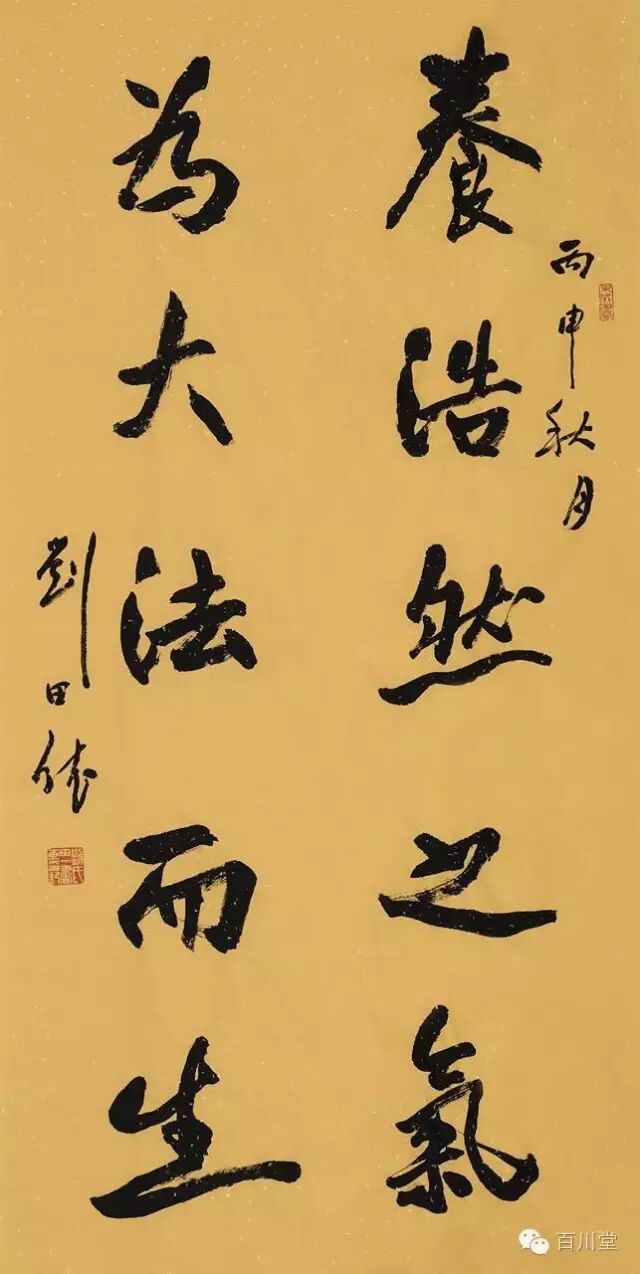 丙申秋月
養浩然之氣
為大法而生
劉田依
百川堂